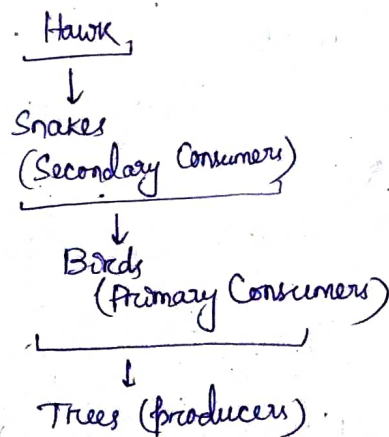 Hawk
Snakes
(Secondary Consumers)
Birds
(Primary Consumers)
Trees (producers).